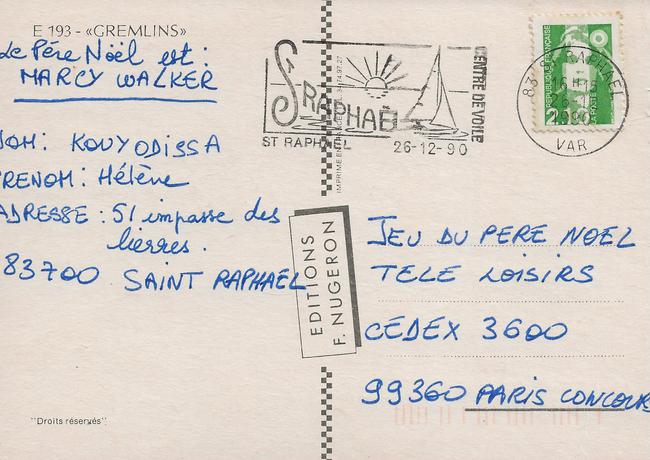 E 193 - «GREMLINS»
Le Père Noël est :
MARCY WALKER
NOM : KOUYODISSA
PRENOM : Hélène
ADRESSE : 51 impasse des
lierres.
83700 SAINT RAPHAEL
"Droits réservés"
EDITIONS
F. NUGERON
St RAPHAËL
CENTRE DE VOILE
ST RAPHAEL 26-12-90
REPUBLIQUE FRANÇAISE
83 ST RAPHAEL
1990
VAR
JEU DU PERE NOEL
TELE LOISIRS
CEDEX 3600
99360 PARIS CONCOURS